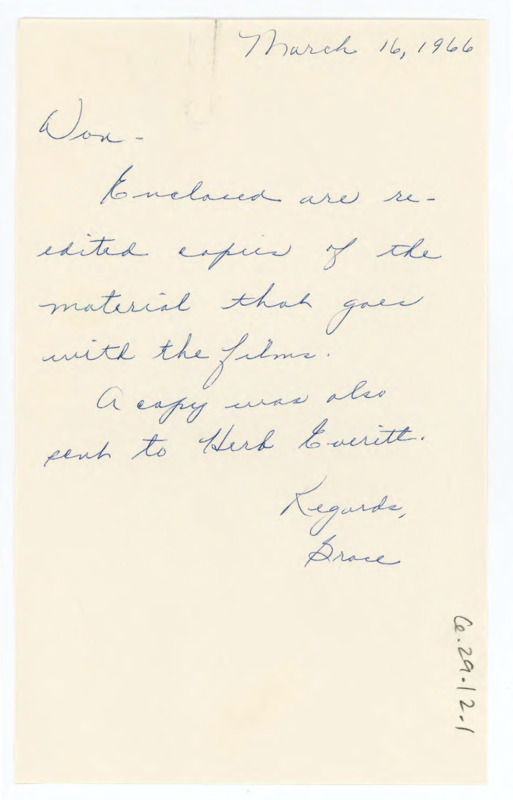 March 16, 1966
Don -
Enclosed are re-
edited copies of the
material that goes
with the films.
A copy was also
sent to Herb Everitt.
Regards,
Grace
6.29.12.1